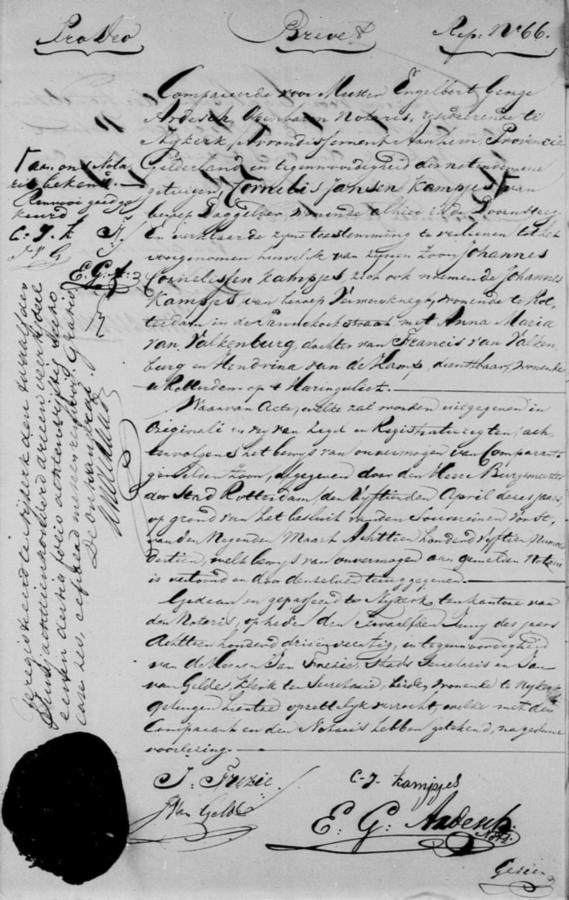 Pro Deo Brevet Rep: No 66.
Compareerde voor Meester Engelbert George
Ardesch, Openbaar Notaris, resideerende te
Nijkerk, Arrondissement Arnhem, Provincie
Gelderland in tegenwoordigheid der natenoemene
getuigen, Cornelis Jansen Kampjes van
beroep Daggelder, wonende alhier in den Doornsteeg
En verklaarde zijne toestemming te verleenen tot het
voorgenomen huwelijk van zijnen Zoon Johannes
Cornelissen Kampjes, zich ook noemende Johannes
Kampjes van beroep Ververs Knegt, wonende te Rot-
terdam in de Pannekoekstraat met Anna Maria
van Valkenburg, dochter van Francis van Valken-
burg en Hendrina van de Kamp, dienstbaar, wonende
te Rotterdam op 't Haringvliet.
Waarvan Acte, welke zal worden uitgegeven in
Originali en vrij van Zegel en Registratieregten, ach-
tervolgens het bewijs van onvermogen van Comparants
gemelden Zoon, afgegeven door den Heer Burgemeester
der Stad Rotterdam den Vijftienden April dezes jaars
op grond van het besluit van den Souvereinen Vorst,
van den Negenden Maart Achttien honderd Vijftien Nummer
dertien, welk bewijs van onvermogen aan gemelden Notaris
is vertoond en door denzelven teruggegeven.
Gedaan en gepasseerd te Nijkerk ten kantore van
den Notaris, op heden den Twaalfden Juny des jaars
Achttien honderd drie en veertig, in tegenwoordigheid
van de Heeren Jan Stads Secretaris en Jan
van Gelder, Klerk ter Secretarie, beide wonende te Nijkerk
getuigen hiertoe verzocht, welke met den
Comparant en den Notaris hebben geteekend, na gedane
voorlezing.
C-J- Kampjes
J van Gelder
E: G: Ardesch.
Nots.
aan ons Nota
ris bekend.
Renvooi goedge
keurd
C: J. K
J. v G
E. G. A.
Geregistreerd te Nijkerk den twaalfden
Junij achttien honderd drie en veertig deel
folio achtenvijftig recto
vak een renvooi. Gratis
De ontvanger